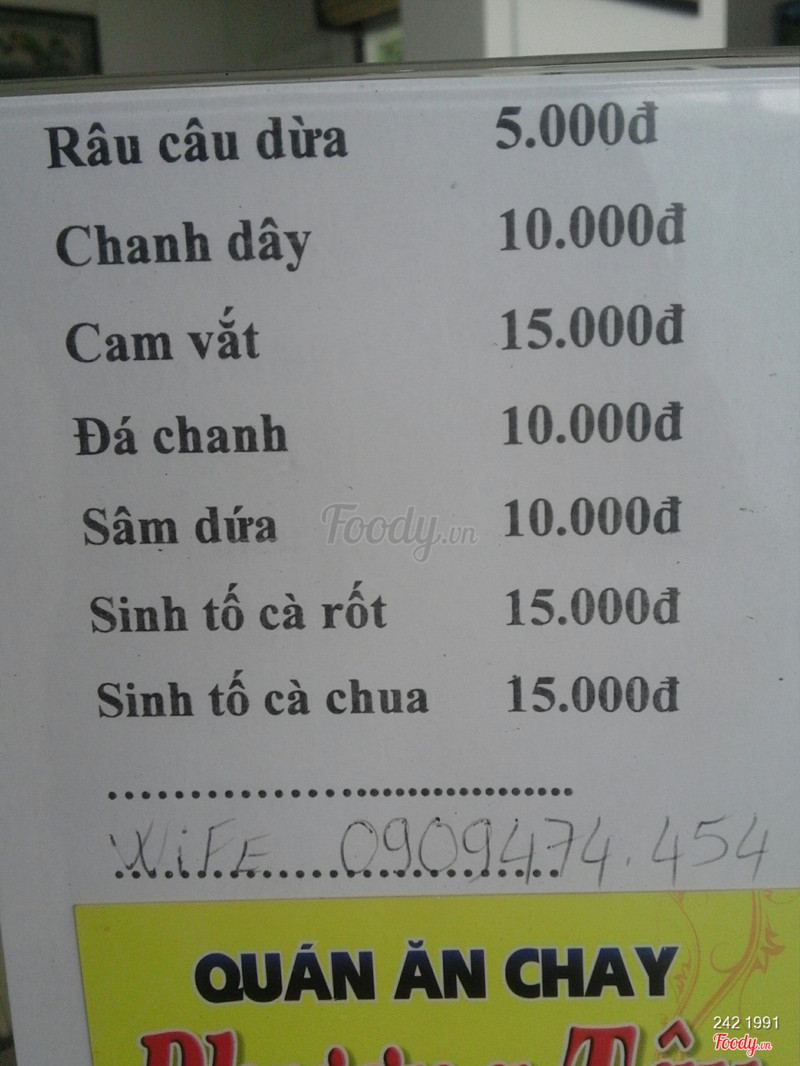 Râu câu dừa 5.000đ
Chanh dây 10.000đ
Cam vắt 15.000đ
Đá chanh 10.000đ
Sâm dứa 10.000đ
Foody.vn
Sinh tố cà rốt 15.000đ
Sinh tố cà chua 15.000đ
WiFE 0909474.454
QUÁN ĂN CHAY
242 1991
Foody.vn